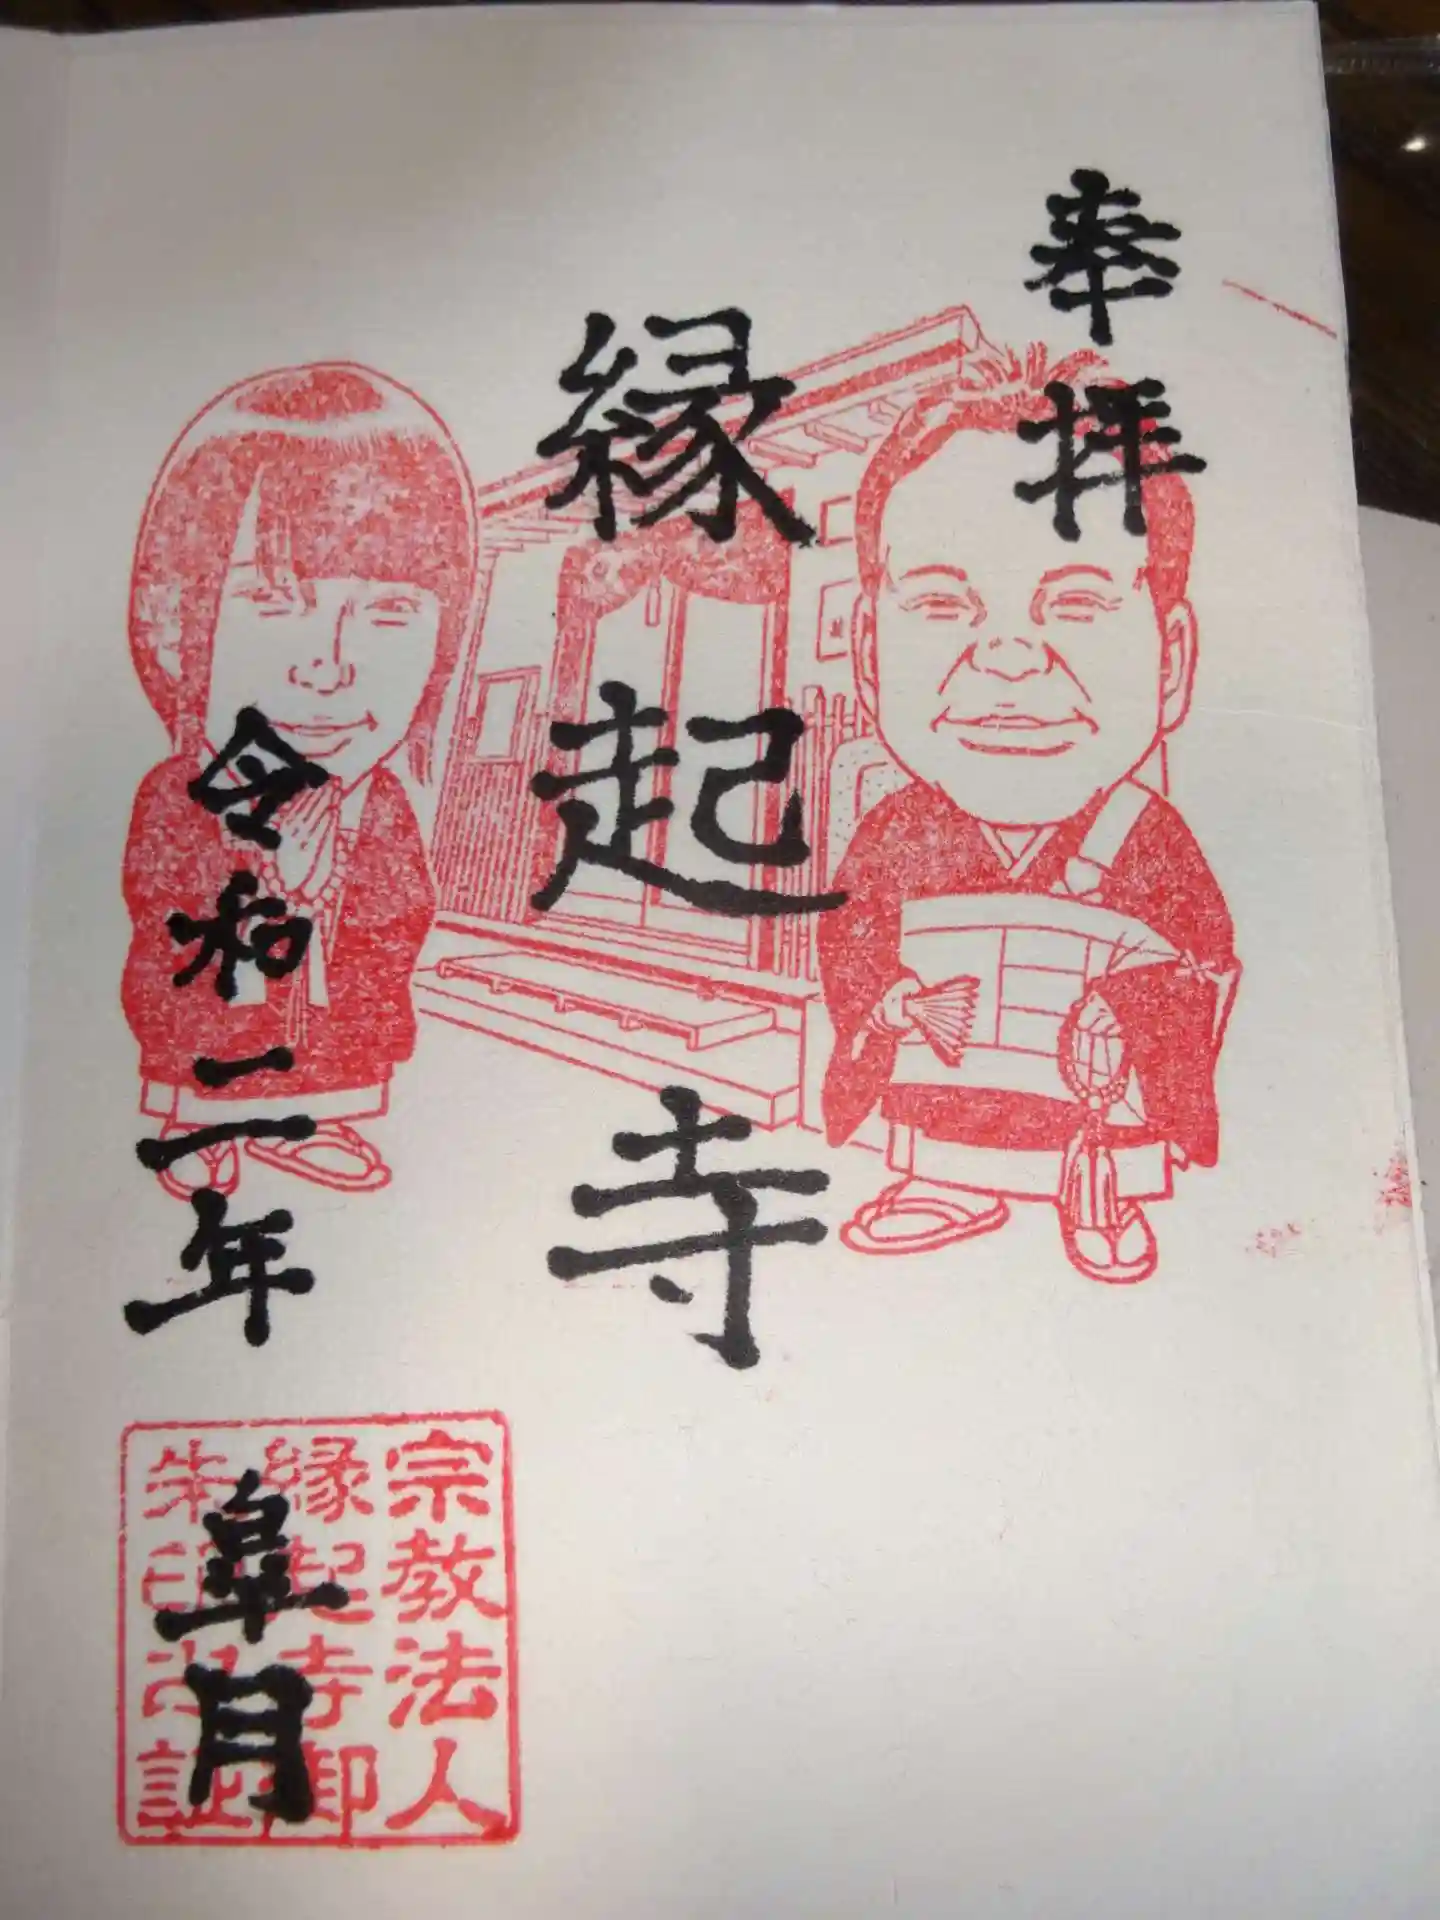 奉拝
縁起寺
令和二年
皐月
宗教法人
縁起寺御
朱印之証